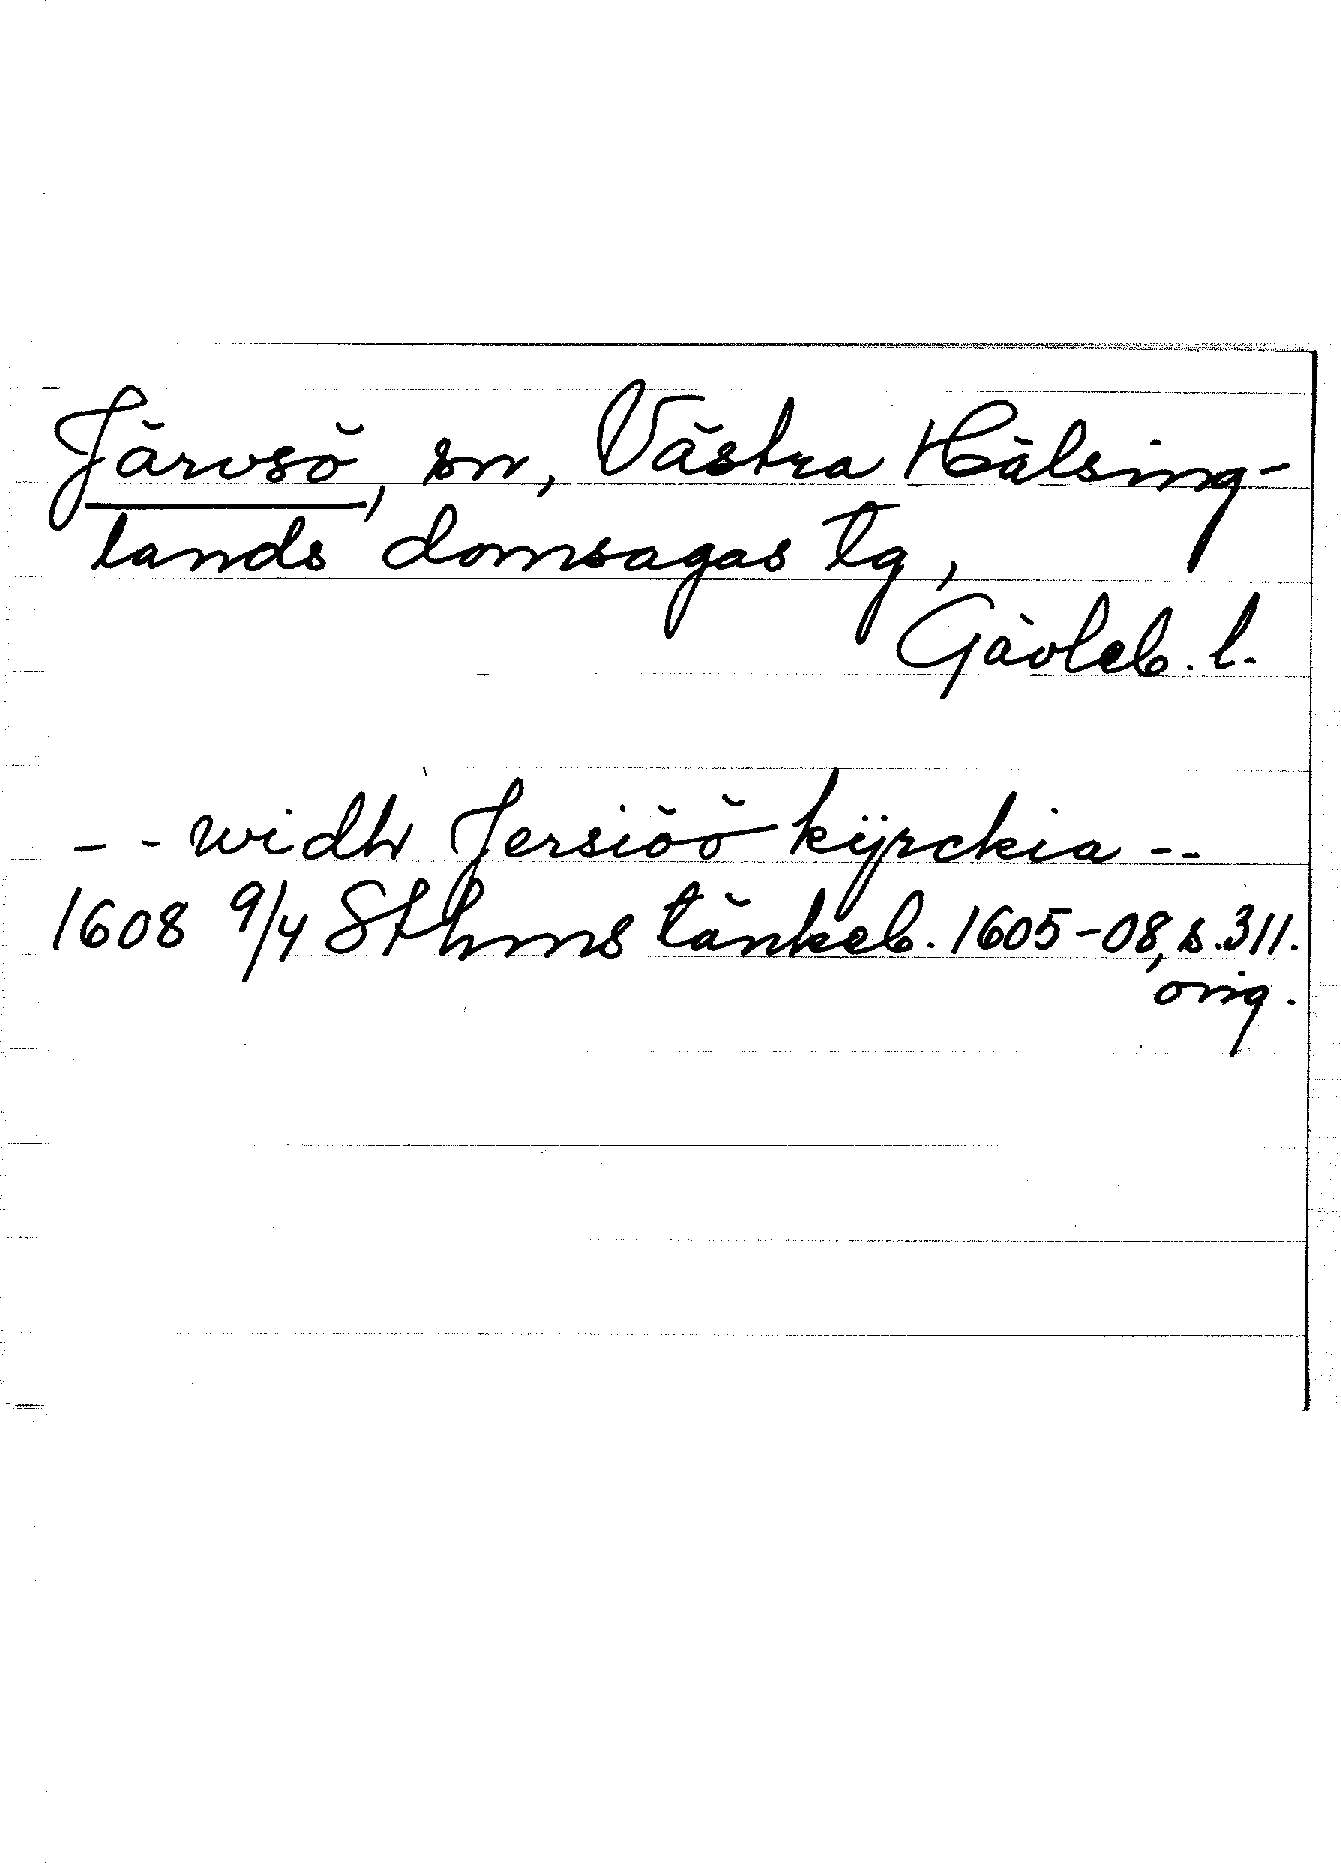 Järvsö, sn, Västra Hälsing-
lands domsagas tg,
Gävleb. l.
- - widh Jersiöö kÿrckia - -
1608 9/4 Sthms tänkeb. 1605-08, s. 311.
orig.